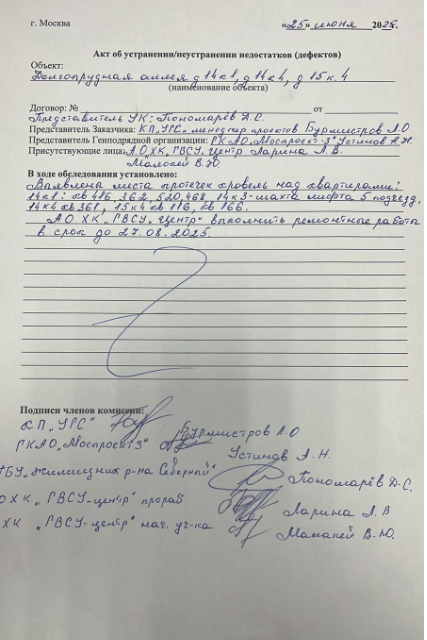 г. Москва «25» июня 2025г.
Акт об устранении/неустранении недостатков (дефектов)
Объект:
Долгопрудная аллея д 14к1, д 14к4, д 15к.4
(наименование объекта)
Договор: № от
Представитель УК: Пономарёв Д.С.
Представитель Заказчика: КП „УГС" менеджер проектов Бурмистров Л.О
Представитель Генподрядной организации: ГКАО„Моспроект-3" Устинов А.Н.
Присутствующие лица: АО ХК „ГВСУ" Центр Ларина Л.В.
Мамакей В.Ю.
В ходе обследования установлено:
Выявлены места протечек кровель над квартирами:
14к1: кв 416, 362, 520, 468, 14к3-шахта лифта 5 подъезд,
14к4 кв 361, 15к4 кв 116, кв 166.
АО ХК „ГВСУ Центр" выполнить ремонтные работы
в срок до 27.08.2025.
Подписи членов комиссии:
КП „УГС" Бурмистров Л.О
ГКАО „Моспроект-3" Устинов А.Н.
ГБУ „Жилищник р-на Северный" Пономарёв Д.С.
ОХК „ГВСУ-центр" прораб Ларина Л.В
ХК „ГВСУ-центр" нач. уч-ка Мамакей В.Ю.